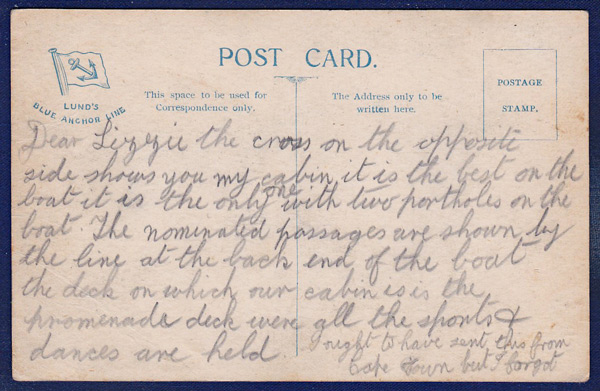 POST CARD.
LUND'S
BLUE ANCHOR LINE
This space to be used for
Correspondence only.
The Address only to be
written here.
POSTAGE
STAMP.
Dear Lizzie the cross on the opposite
side shows you my cabin it is the best on the
boat it is the only one with two portholes on the
boat. The nominated passages are shown by
the line at the back end of the boat
the deck on which our cabin is is the
promenade deck were all the sports &
dances are held.
ought to have sent this from
Cape Town but I forgot